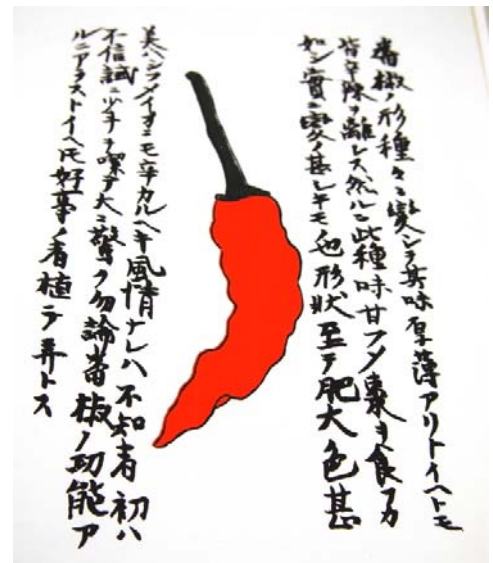 番椒ノ形種々ニ變シテ其味厚薄アリトイヘトモ
皆辛辣ヲ離レス然ルニ此種味甘フメ棗ヲ食フカ
如シ實ニ變ノ甚シキモ也形状至テ肥大色甚
美ハシフメイカニモ辛カルヘキ風情ナレハ不知者初ハ
不信試ニ少キヲ喫テ大ニ驚ク勿論番椒ノ功能ア
ルニアラストイヘ𪜈好事ノ者植テ弄トス